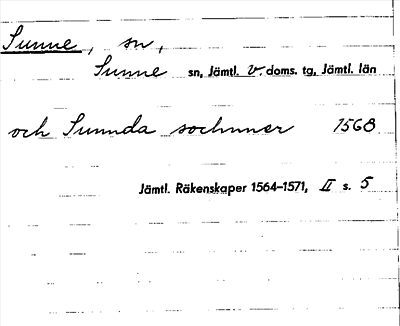 Sunne, sn,
Sunne sn, Jämtl. v. doms. tg, Jämtl. län
och Sunnda sochnner 1568
Jämtl. Räkenskaper 1564–1571, II s. 5